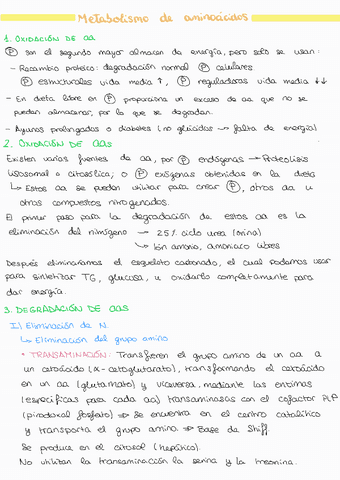 Metabolismo de aminoácidos
1. OXIDACIÓN DE aa
Ⓟ son el segundo mayor almacen de energía, pero solo se usan:
- Recambio proteico: degradación normal Ⓟ celulares.
Ⓟ estructurales vida media ↑, Ⓟ reguladoras vida media ↓↓
- En dieta libre en Ⓟ proporciona un exceso de aa que no se
pueden almacenar, por lo que se degradan.
- Ayunos prolongados o diabetes (no glúcidos → falta de energía)
2. OXIDACIÓN DE aas
Existen varias fuentes de aa, por Ⓟ endógenas → Proteolisis
lisosomal o citosólica, o Ⓟ exógenas obtenidas en la dieta
↳ Estos aa se pueden utilizar para crear Ⓟ, otros aa u
otros compuestos nitrogenados.
El primer paso para la degradación de estos aa es la
eliminación del nitrógeno → 25% ciclo urea (orina)
↘ Ión amonio, amoniaco libres
Después eliminaremos el esqueleto carbonado, el cual podemos usar
para sintetizar TG, glucosa, u oxidarlo completamente para
dar energía.
3. DEGRADACIÓN DE aas
I.) Eliminación de N.
↳ Eliminación del grupo amino
* TRANSAMINACIÓN: Transfieren el grupo amino de un aa a
un cetoácido (α-cetoglutarato), transformando el cetoácido
en un aa (glutamato) y viceversa, mediante las enzimas
(específicas para cada aa) transaminasas con el cofactor PLP
(piridoxal fosfato) ⇒ Se encuentra en el centro catalítico
y transporta el grupo amino. ⇒ Base de Shiff
Se produce en el citosol (hepático).
No utilizan la transaminación la serina y la treonina.